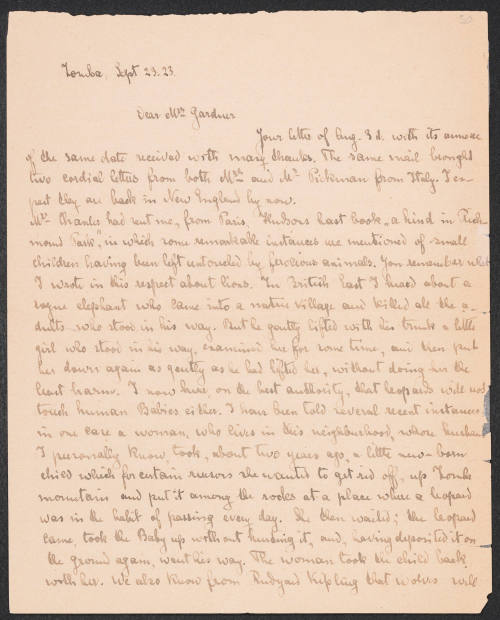 Zomba, Sept 23. 23.
Dear Mrs Gardner
Your letter of Aug. 3d. with its annexe
of the same date received with many thanks. The same mail brought
two cordial letters from both Mrs and Mr Pickman from Italy. I ex-
pect they are back in New England by now.
Mr Charles had sent me, from Paris, Hudson's last book, "a hind in Rich-
mond Park", in which some remarkable instances are mentioned of small
children having been left untouched by ferocious animals. You remember what
I wrote in this respect about lions. In British East I heard about a
rogue elephant who came into a native village and killed all the a-
dults who stood in his way. But he gently lifted with his trunk a little
girl who stood in his way, examined her for some time, and then put
her down again as gently as he had lifted her, without doing her the
least harm. I now hear, on the best authority, that leopards will not
touch human Babies either. I have been told several recent instances
in one case a woman, who lives in this neighbourhood, whose husband
I personally know, took, about two years ago, a little new-born
child which for certain reasons she wanted to get rid off, up Zomba
mountain and put it among the rocks at a place where a leopard
was in the habit of passing every day. She then waited; the leopard
came, took the Baby up without hurting it, and, having deposited it on
the ground again, went his way. The woman took the child back
with her. We also know from Rudyard Kipling that wolves will